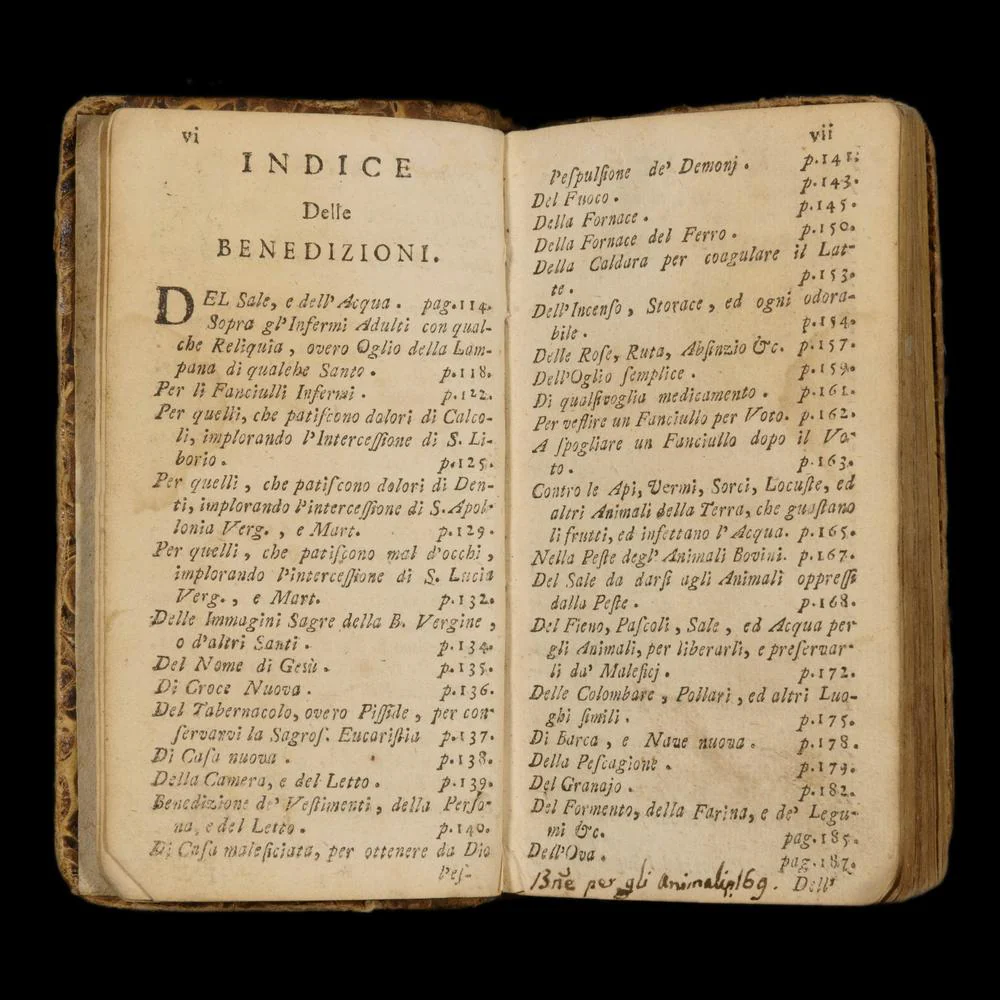 vi
INDICE
Delle
BENEDIZIONI.
DEL Sale, e dell'Acqua. pag.114.
Sopra gl'Infermi Adulti con qual-
che Reliquia, overo Oglio della Lam-
pana di qualche Santo. p.118.
Per li Fanciulli Infermi. p.122.
Per quelli, che patiſcono dolori di Calco-
li, implorando l'Interceſſione di S. Li-
borio. p.125.
Per quelli, che patiſcono dolori di Den-
ti, implorando l'interceſſione di S. Apol-
lonia Verg., e Mart. p.129.
Per quelli, che patiſcono mal d'occhi,
implorando l'interceſſione di S. Lucia
Verg., e Mart. p.132.
Delle Immagini Sagre della B. Vergine,
o d'altri Santi. p.134.
Del Nome di Gesù. p.135.
Di Croce Nuova. p.136.
Del Tabernacolo, overo Piſſide, per con-
ſervarvi la Sagroſ. Eucariſtia p.137.
Di Caſa nuova. p.138.
Della Camera, e del Letto. p.139.
Benedizione de' Veſtimenti, della Perſo-
na, e del Letto. p.140.
Di Caſa maleficiata, per ottenere da Dio
l'eſ-
vii
l'eſpulſione de' Demonj. p.141.
Del Fuoco. p.143.
Della Fornace. p.145.
Della Fornace del Ferro. p.150.
Della Caldara per coagulare il Lat-
te. p.153.
Dell'Incenſo, Storace, ed ogni odora-
bile. p.154.
Delle Roſe, Ruta, Abſinzio &c. p.157.
Dell'Oglio ſemplice. p.159.
Di qualſivoglia medicamento. p.161.
Per veſtire un Fanciullo per Voto. p.162.
A ſpogliare un Fanciullo dopo il Vo-
to. p.163.
Contro le Api, Vermi, Sorci, Locuſte, ed
altri Animali della Terra, che guaſtano
li frutti, ed infettano l'Acqua. p.165.
Nella Peſte degl'Animali Bovini. p.167.
Del Sale da darſi agli Animali oppreſſi
dalla Peſte. p.168.
Del Fieno, Paſcoli, Sale, ed Acqua per
gli Animali, per liberarli, e preſervar-
li da' Maleficj. p.172.
Delle Colombare, Pollari, ed altri Luo-
ghi ſimili. p.175.
Di Barca, e Nave nuova. p.178.
Della Peſcagione. p.179.
Del Granajo. p.182.
Del Formento, della Farina, e de' Legu-
mi &c. pag.185.
Dell'Ova. pag.187.
Bne per gli Animali p.169.
Dell'